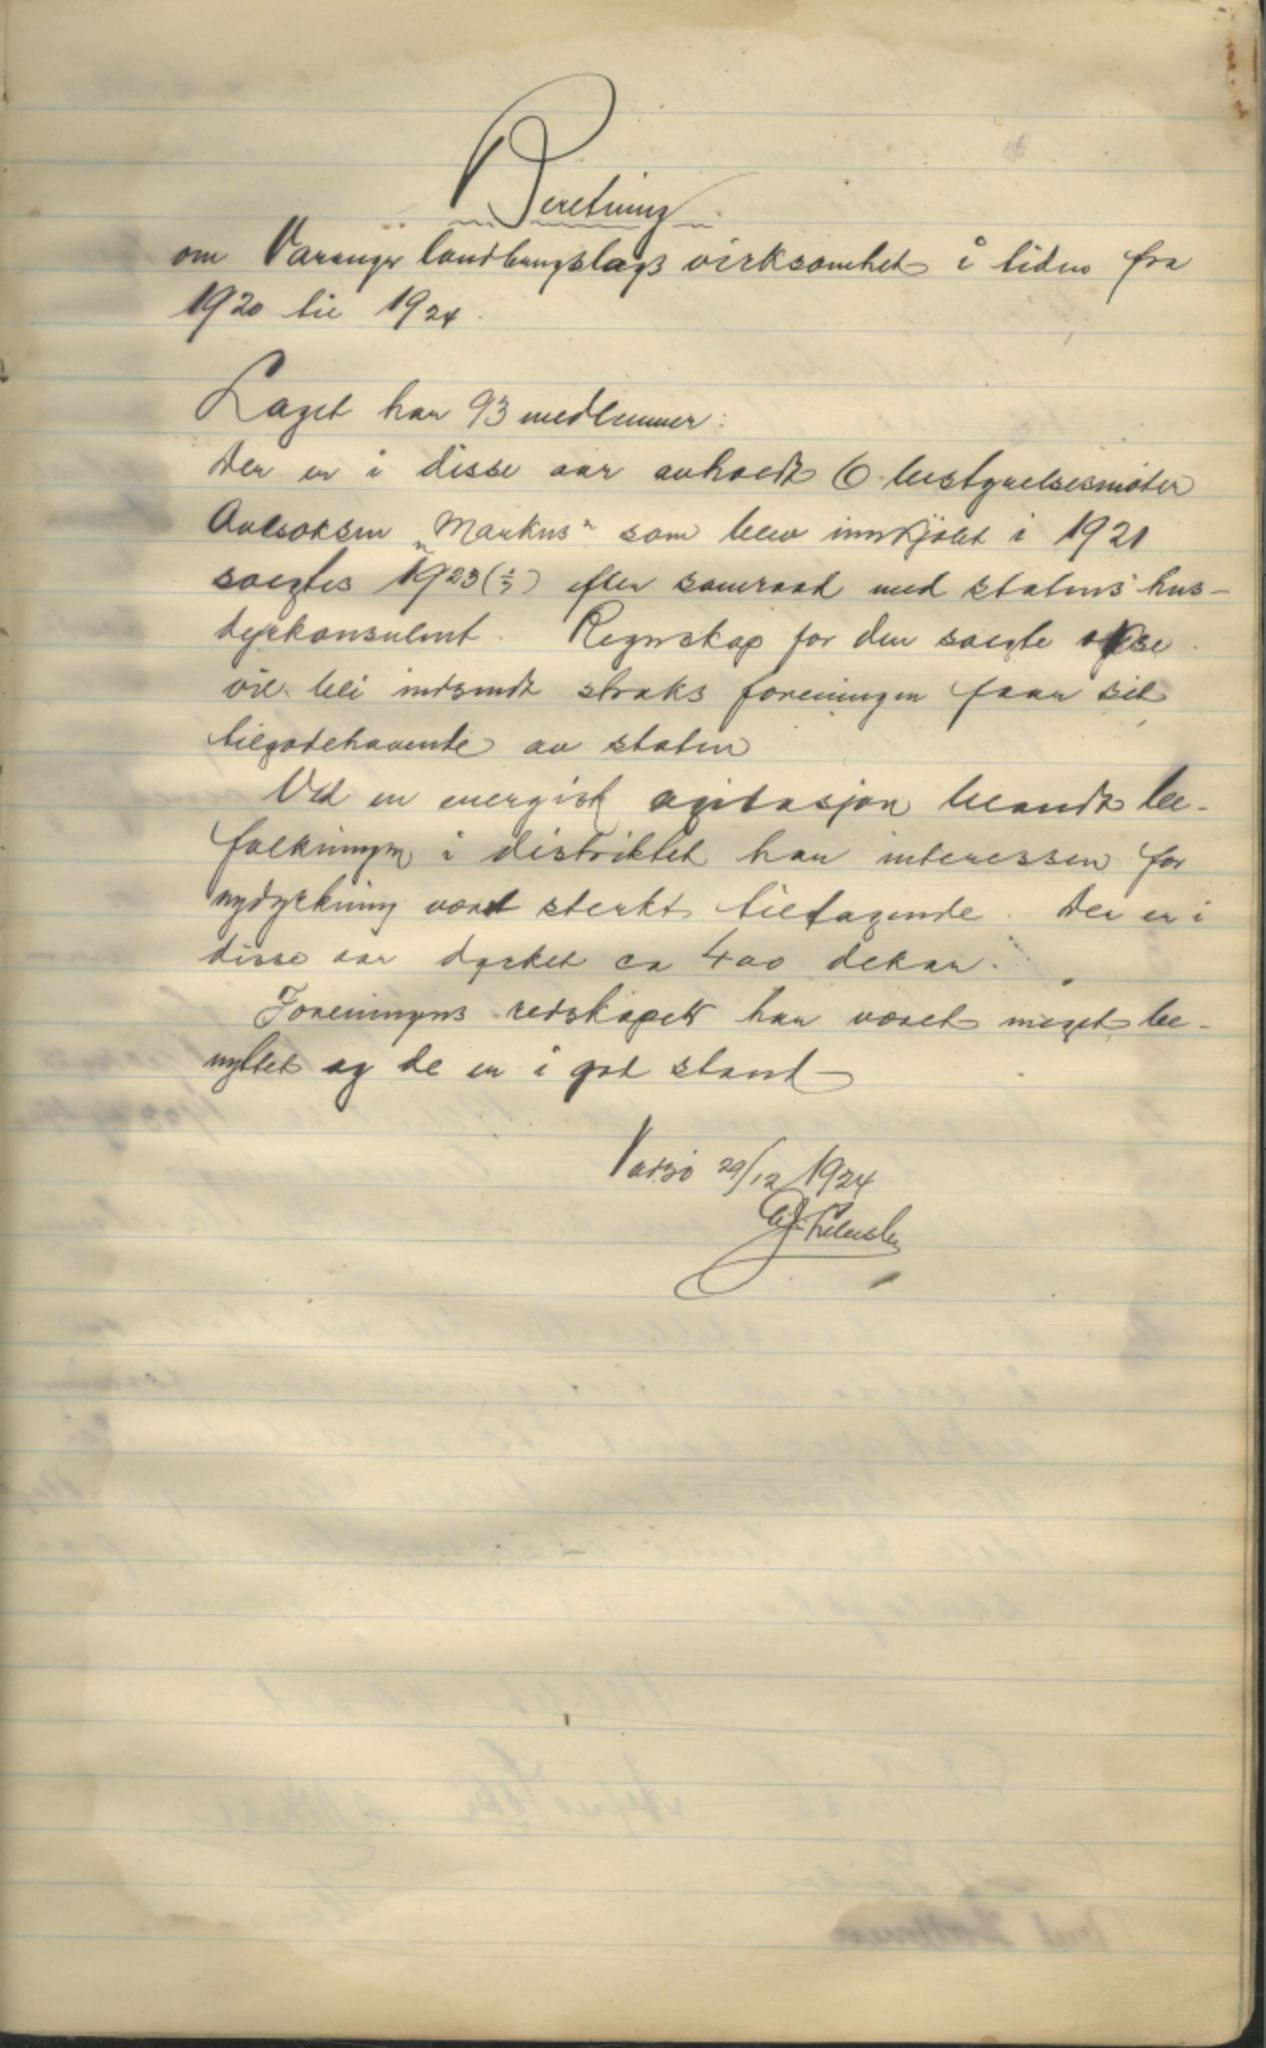 Beretning
om Varanger landbrugslags virksomhet i tiden fra
1920 til 1924.
Laget har 93 medlemmer:
Der er i disse aar avholdt 6 bestyrelsesmøter
Avlsoksen „Markus" som blev innkjøbt i 1921
solgtes 1923 efter samraad med statens hus-
dyrkonsulent. Regnskap for den solgte okse
vil bli indsendt straks foreningen faar sit
tilgodehavende av staten
Ved en energisk agitasjon blandt be-
folkningen i distriktet har interessen for
nydyrkning vært sterkt tiltagende. Der er i
disse aar dyrket ca 400 dekar.
Foreningens redskaper har været meget be-
nyttet og de er i god stand
Vadsø 29/12 1924